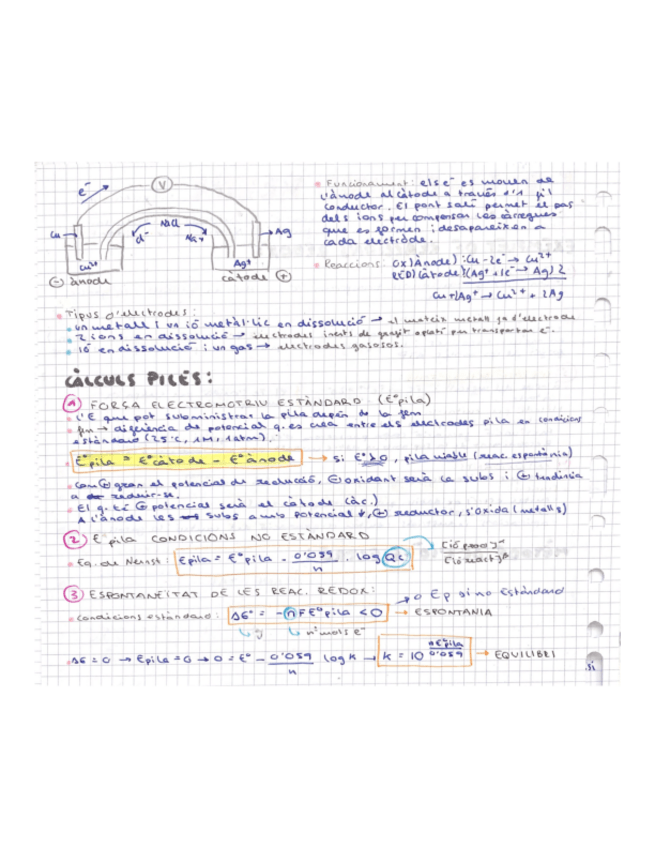 e⁻
V
Cu
NaCl
Cl⁻
Na+
Ag
Cu²⁺
Ag⁺
⊖ ànode
càtode ⊕
Funcionament: els e⁻ es mouen de
l'ànode al càtode a través d'1 fil
conductor. El pont salí permet el pas
dels ions per compensar les càrregues
que es formen i desapareixen a
cada elèctrode.
Reaccions: OX) Ànode): Cu - 2e⁻ → Cu²⁺
RED) Càtode): (Ag⁺ + 1e⁻ → Ag) 2
Cu + Ag⁺ → Cu²⁺ + 2Ag
Tipus d'elèctrodes:
un metall i un ió metàl·lic en dissolució → el mateix metall fa d'elèctrode
2 ions en dissolució → elèctrodes inerts de grafit o platí per transportar e⁻.
ió en dissolució i un gas → elèctrodes gasosos.
CÀLCULS PILES:
1 FORÇA ELECTROMOTRIU ESTÀNDARD (E°pila)
L'E que pot subministrar la pila depèn de la fem
fem → diferència de potencial q. es crea entre els elèctrodes pila en condicions
estàndard (25°C, 1M, 1atm).
E°pila = E°càtode - E°ànode → si E° > 0, pila viable (reac. espontània)
Com ⊕ gran el potencial de reducció, ⊕ oxidant serà la subs i ⊕ tendència
a reduir-se.
El q. té ⊕ potencial serà el càtode (àc.)
A l'ànode les subs amb potencial ↓, ⊕ reductor, s'oxida (metalls)
2 E pila CONDICIONS NO ESTÀNDARD
Eq. de Nernst: Epila = E°pila - 0'059/n · log Qc
[ió prod]ʸ
[ió react]ˣ
3 ESPONTANEÏTAT DE LES REAC. REDOX:
o Ep si no estàndard
Condicions estàndard: ΔG° = -nFE°pila < 0 → ESPONTANIA
J
nº mols e⁻
ΔG = 0 → Epila = 0 → 0 = E° - 0'059/n log K → K = 10^(nE°pila/0'059) → EQUILIBRI